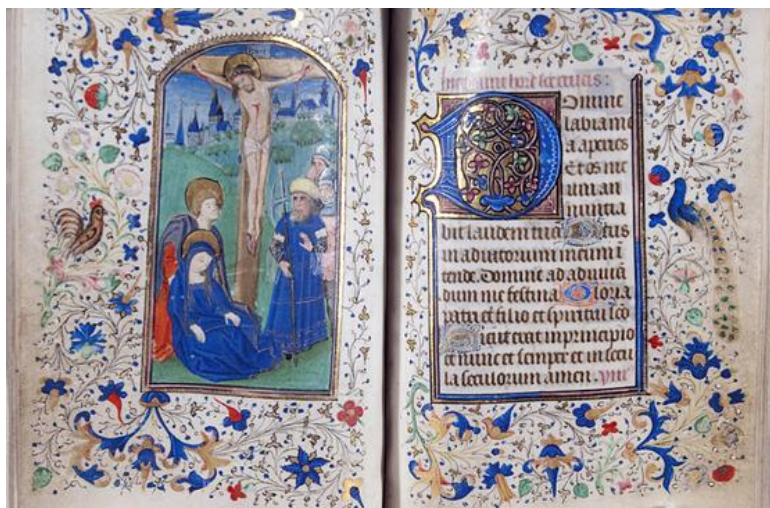 Incipiunt hore sce crucis:
Domine
labia me
a aperies
Et os me
um an
nuntia
bit laudem tuā Deus
in adiutorium meum in
tende. Domine ad adiuuā
dum me festina Gloria
patri et filio et spiritui sco
Sicut erat in principio
et nunc et semper et in secu
la seculorum amen.